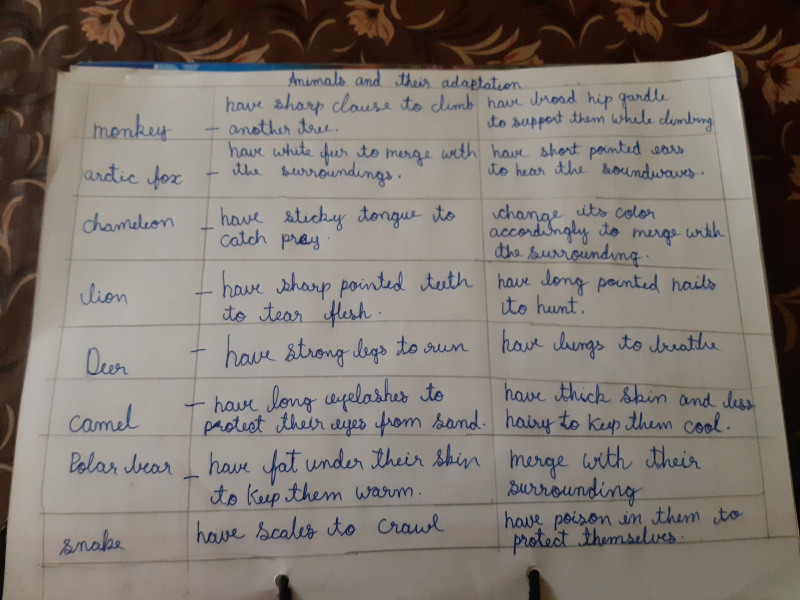 Animals and their adaptation.
have sharp clause to climb
have broad hip gardle
monkey - another tree.
to support them while climbing
have white fur to merge with
have short pointed ears
arctic fox - the surroundings.
to hear the soundwaves.
chameleon - have sticky tongue to
catch pray.
change its color
accordingly to merge with
the surrounding.
lion - have sharp pointed teeth
to tear flesh.
have long pointed nails
to hunt.
Deer - have strong legs to run
have lungs to breathe
camel - have long eyelashes to
protect their eyes from sand.
have thick skin and less
hairy to keep them cool.
Polar bear - have fat under their skin
to keep them warm.
merge with their
surrounding
snake have scales to crawl
have poison in them to
protect themselves.